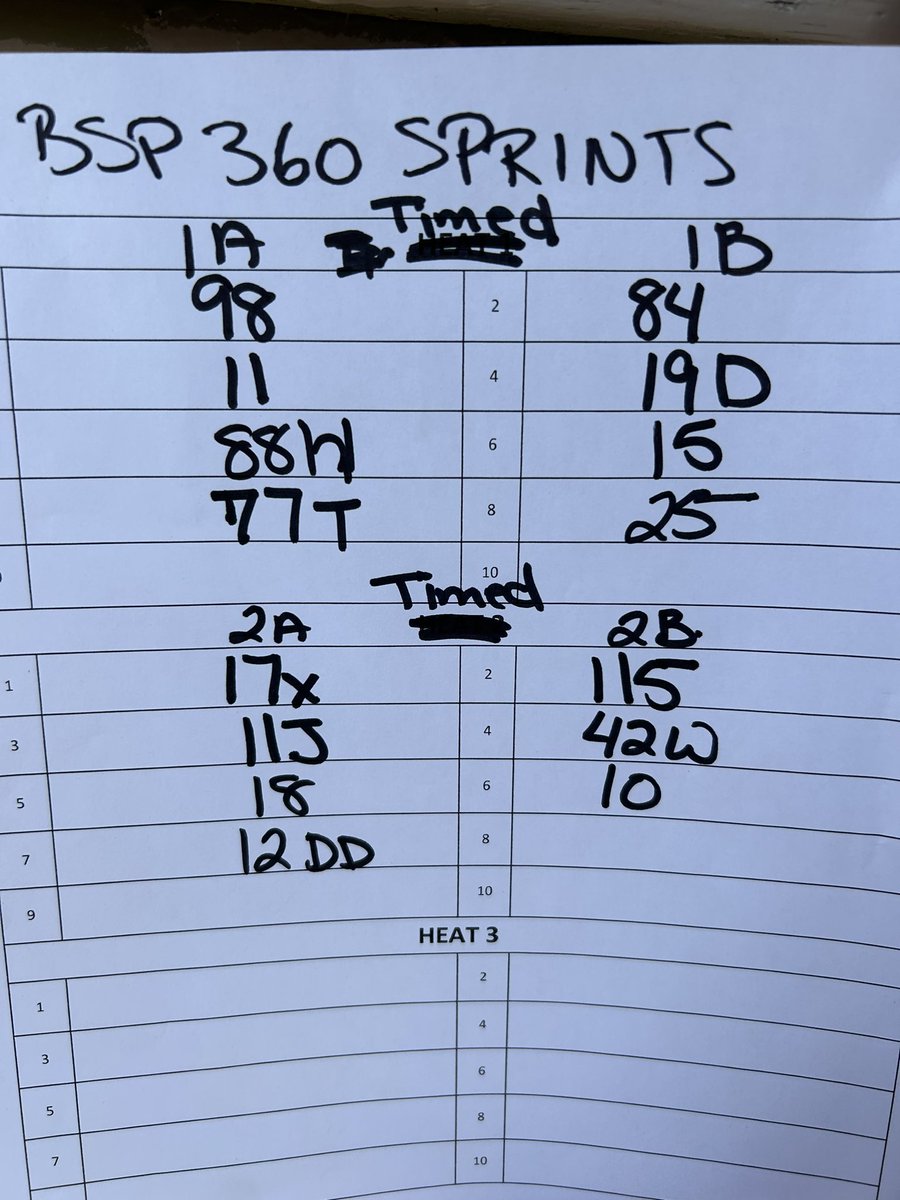 BSP 360 SPRINTS
Timed
1A 1B
98 2 84
11 4 19D
88W 6 15
77T 8 25
10
Timed
2A 2B
1 17x 2 115
3 11J 4 42W
5 18 6 10
7 12DD 8
9 10
HEAT 3
1 2
3 4
5 6
7 8
10